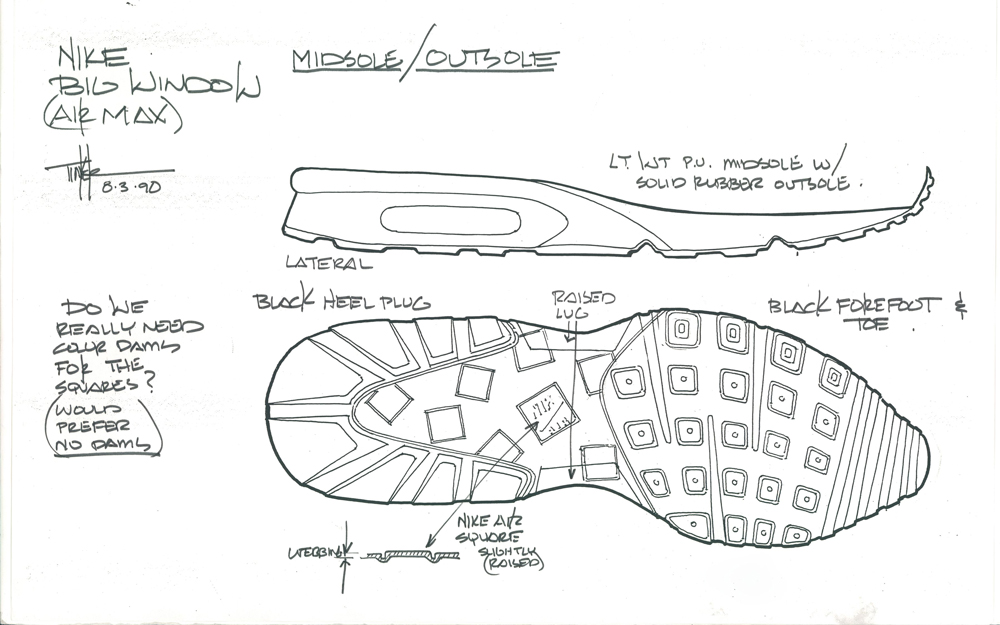 NIKE
BIG WINDOW
(AIR MAX)
MIDSOLE/OUTSOLE
TINKER
8.3.90
LT. WT P.U. MIDSOLE W/
SOLID RUBBER OUTSOLE.
LATERAL
BLACK HEEL PLUG
RAISED
LUG
BLACK FOREFOOT &
TOE.
DO WE
REALLY NEED
COLOR DAMS
FOR THE
SQUARES?
(WOULD
PREFER
NO DAMS)
NIKE AIR
SQUARE
SLIGHTLY
(RAISED)
WEBBING